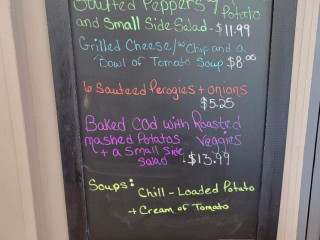 Stuffed Peppers, Potato
and Small Side Salad - $11.99
Grilled Cheese/ Chip and a
Bowl of Tomato Soup $8.00
6 Sauteed Perogies + onions
$5.25
Baked Cod with Roasted
mashed Potatos Veggies
+ a small side
Salad $13.99
Soups: Chili - Loaded Potato
+ Cream of Tomato